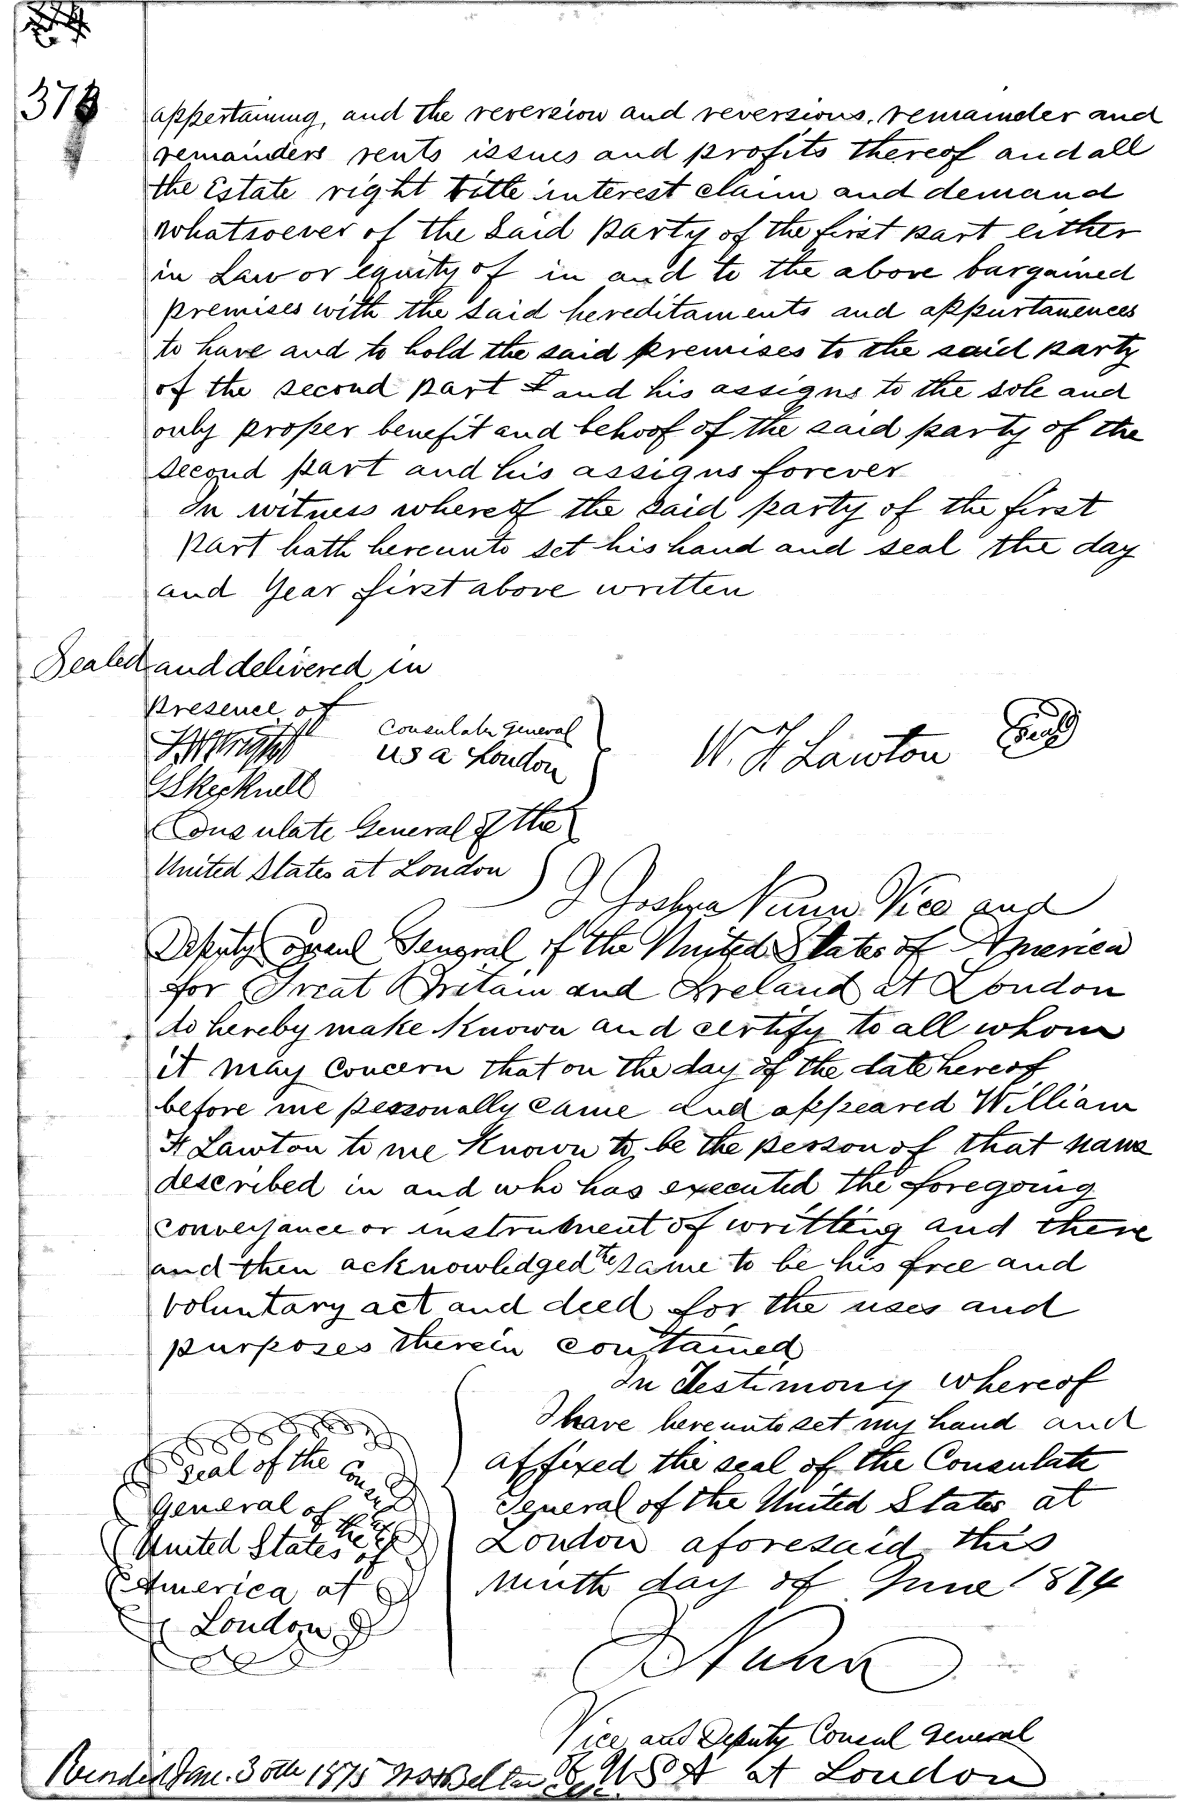 373
appertaining, and the reversion and reversions, remainder and
remainders rents issues and profits thereof and all
the Estate right title interest claim and demand
whatsoever of the Said party of the first part either
in Law or equity of in and to the above bargained
premises with the said hereditaments and appurtanences
to have and to hold the said premises to the said party
of the second part and his assigns to the sole and
only proper benefit and behoof of the said party of the
second part and his assigns forever
In witness whereof the said party of the first
part hath hereunto set his hand and seal the day
and Year first above written
Sealed and delivered in
presence of
Consulate General
USA London
W. H Lawton Seal
Consulate General of the
United States at London
I Joshua Nunn Vice and
Deputy Consul General of the United States of America
for Great Britain and Ireland at London
do hereby make Known and certify to all whom
it may concern that on the day of the date hereof
before me personally came and appeared William
H Lawton to me Known to be the person of that name
described in and who has executed the foregoing
conveyance or instrument of writting and there
and then acknowledged the same to be his free and
voluntary act and deed for the uses and
purposes therein contained
In Testimony whereof
I have hereunto set my hand and
affixed the seal of the Consulate
General of the United States at
London aforesaid this
ninth day of June 1874
Seal of the
General of the
United States of
America at
London
J Nunn
Vice and Deputy Consul General
of USA at London
Jan. 30th 1875